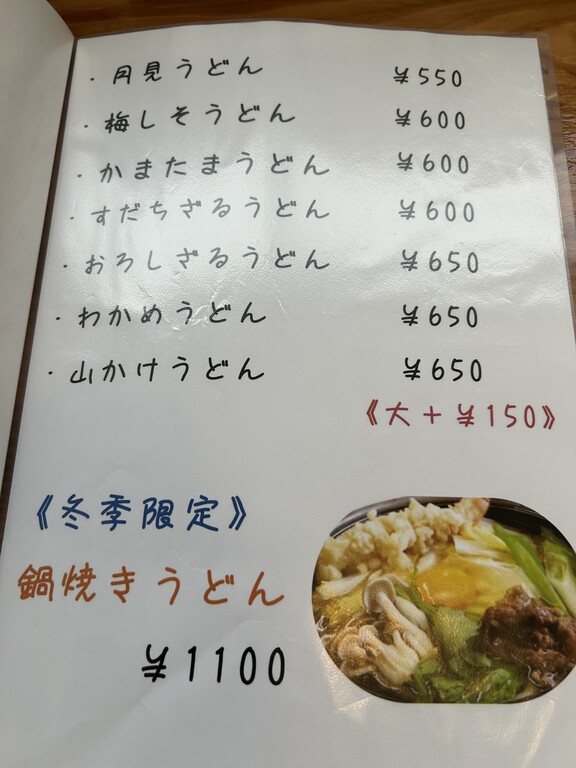 ・月見うどん ¥550
・梅しそうどん ¥600
・かまたまうどん ¥600
・すだちざるうどん ¥600
・おろしざるうどん ¥650
・わかめうどん ¥650
・山かけうどん ¥650
《大+¥150》
《冬季限定》
鍋焼きうどん
¥1100